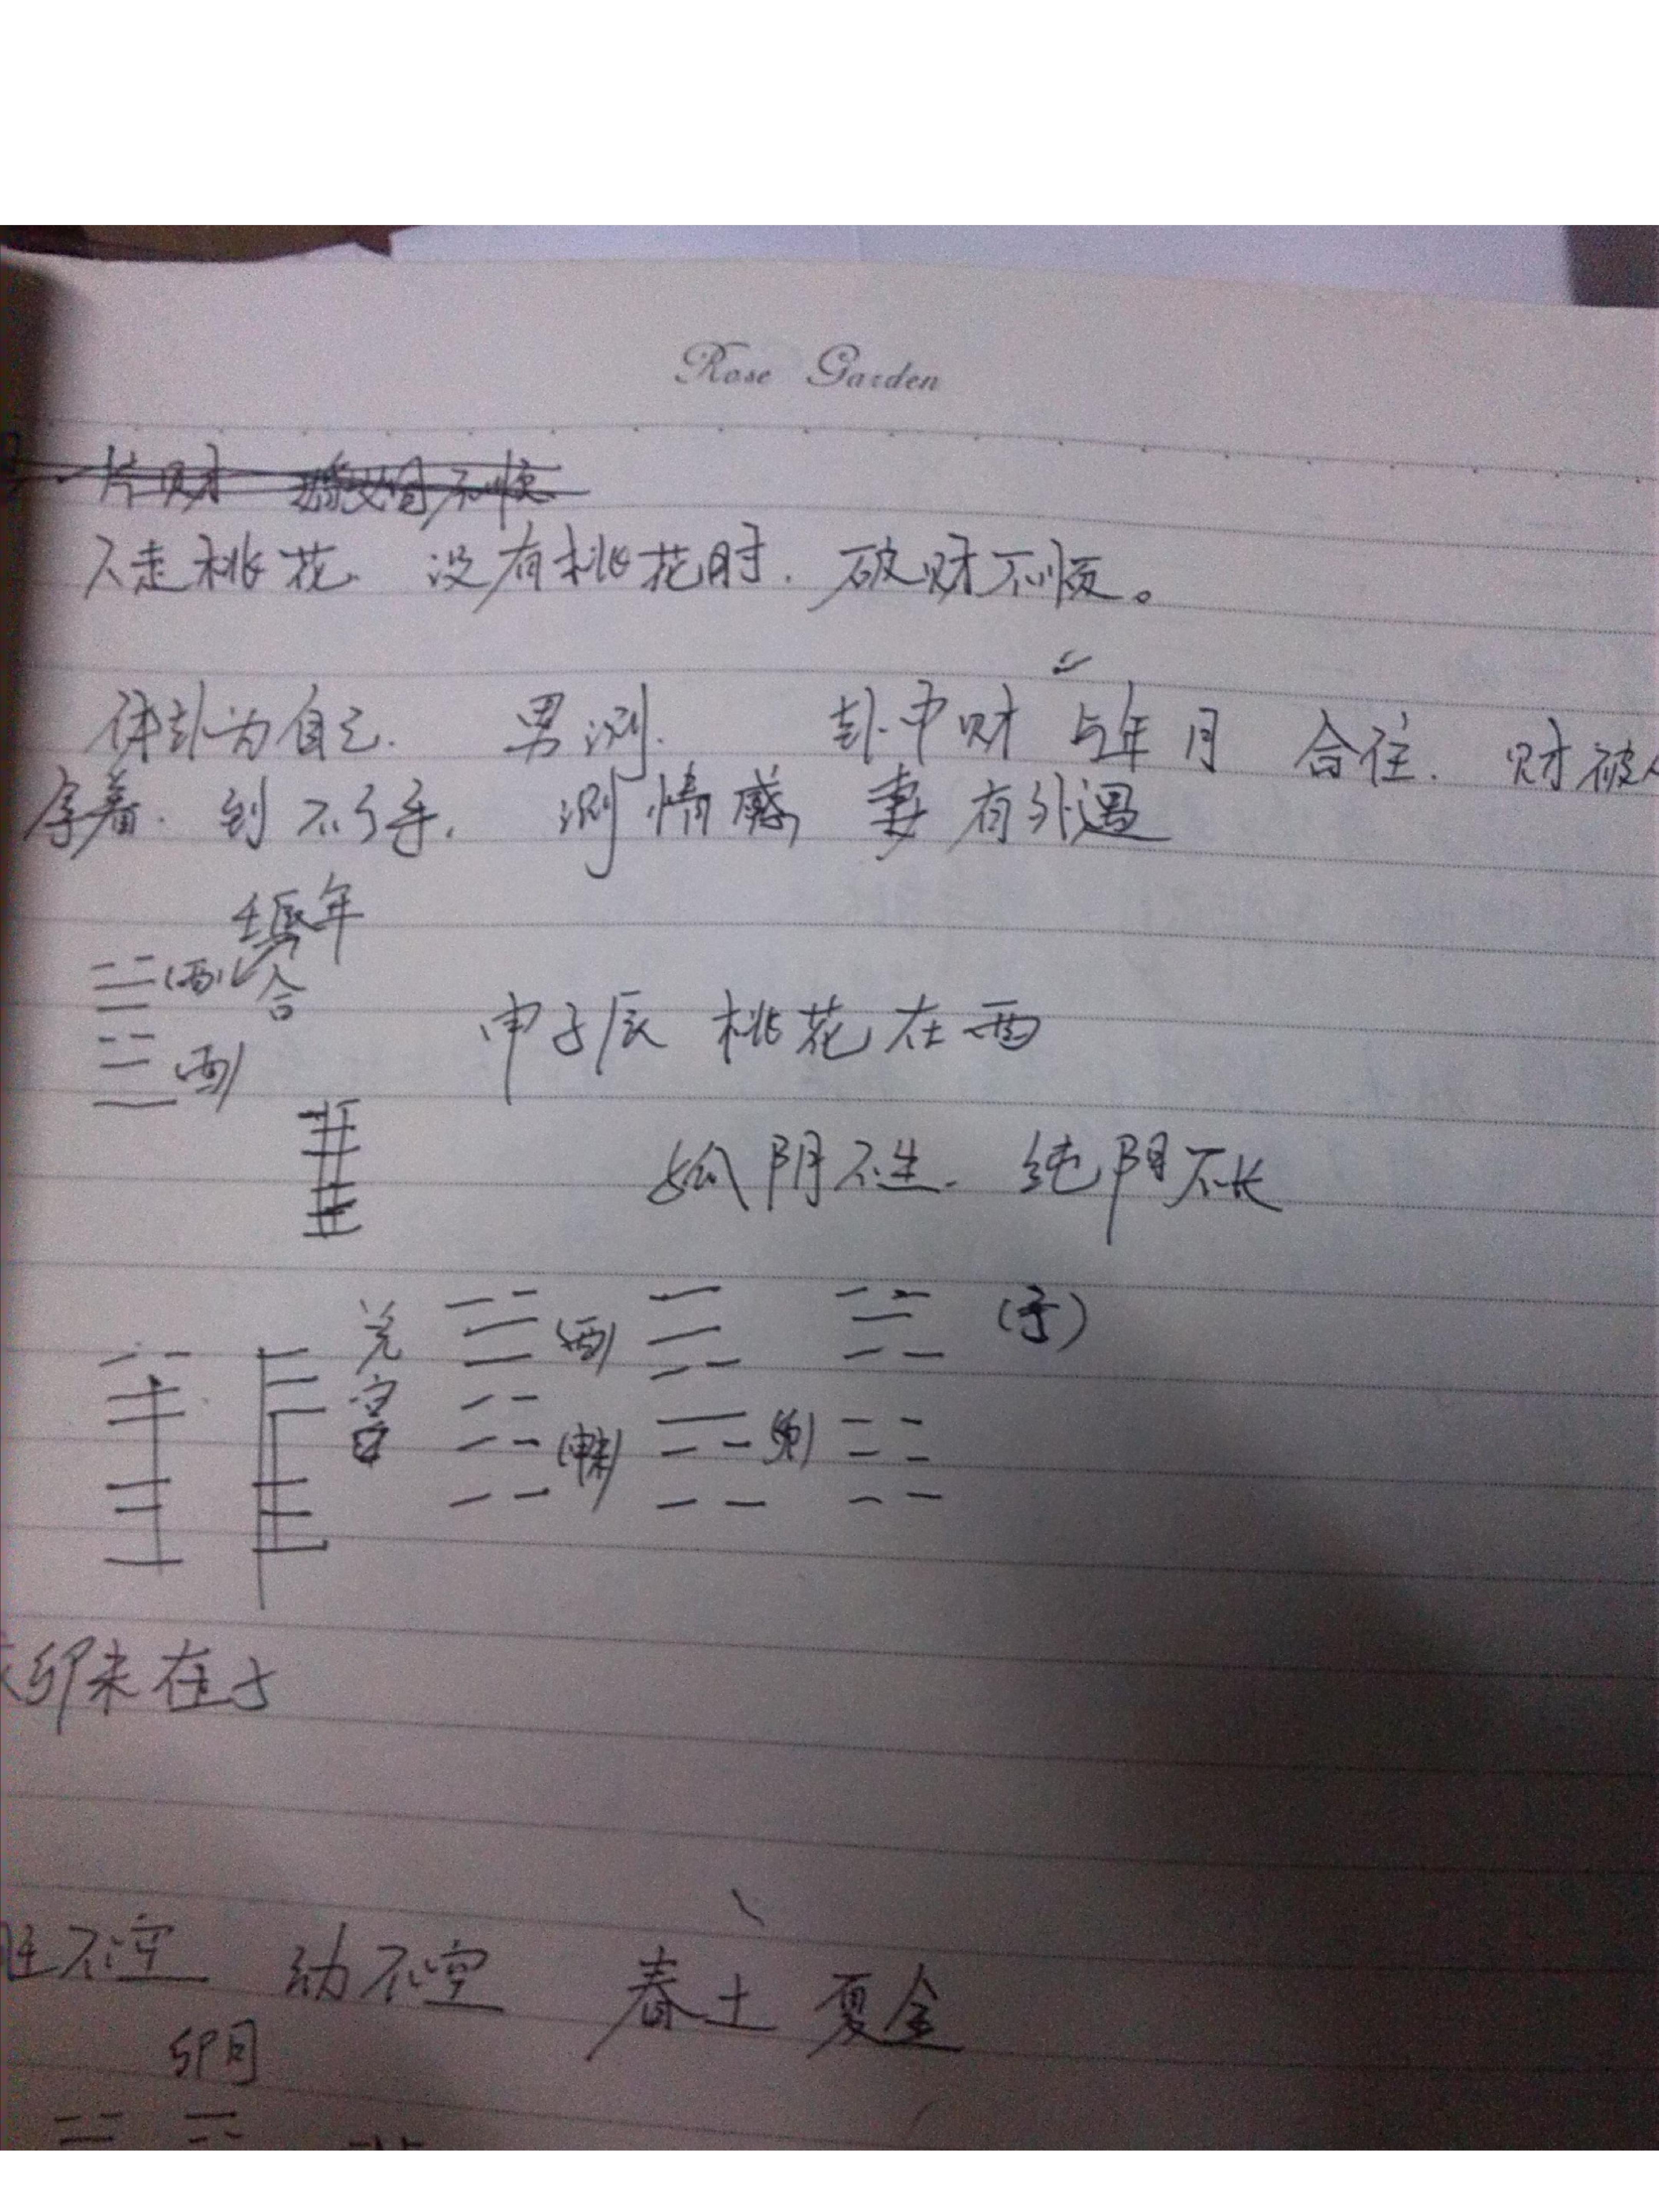 Rose Garden
只走桃花. 没有桃花时. 破财不顺。
体卦为自己. 男测. 卦中财 与年月 合住. 财被
着. 到不了手. 测情感 妻有外遇
壬辰年
(酉) 合
申子辰 桃花在酉
(酉)
孤阴不生. 纯阴不长
兑宫 (酉) (子)
(卯)
卯未在子
旺不空 动不空 春土 夏金
卯月